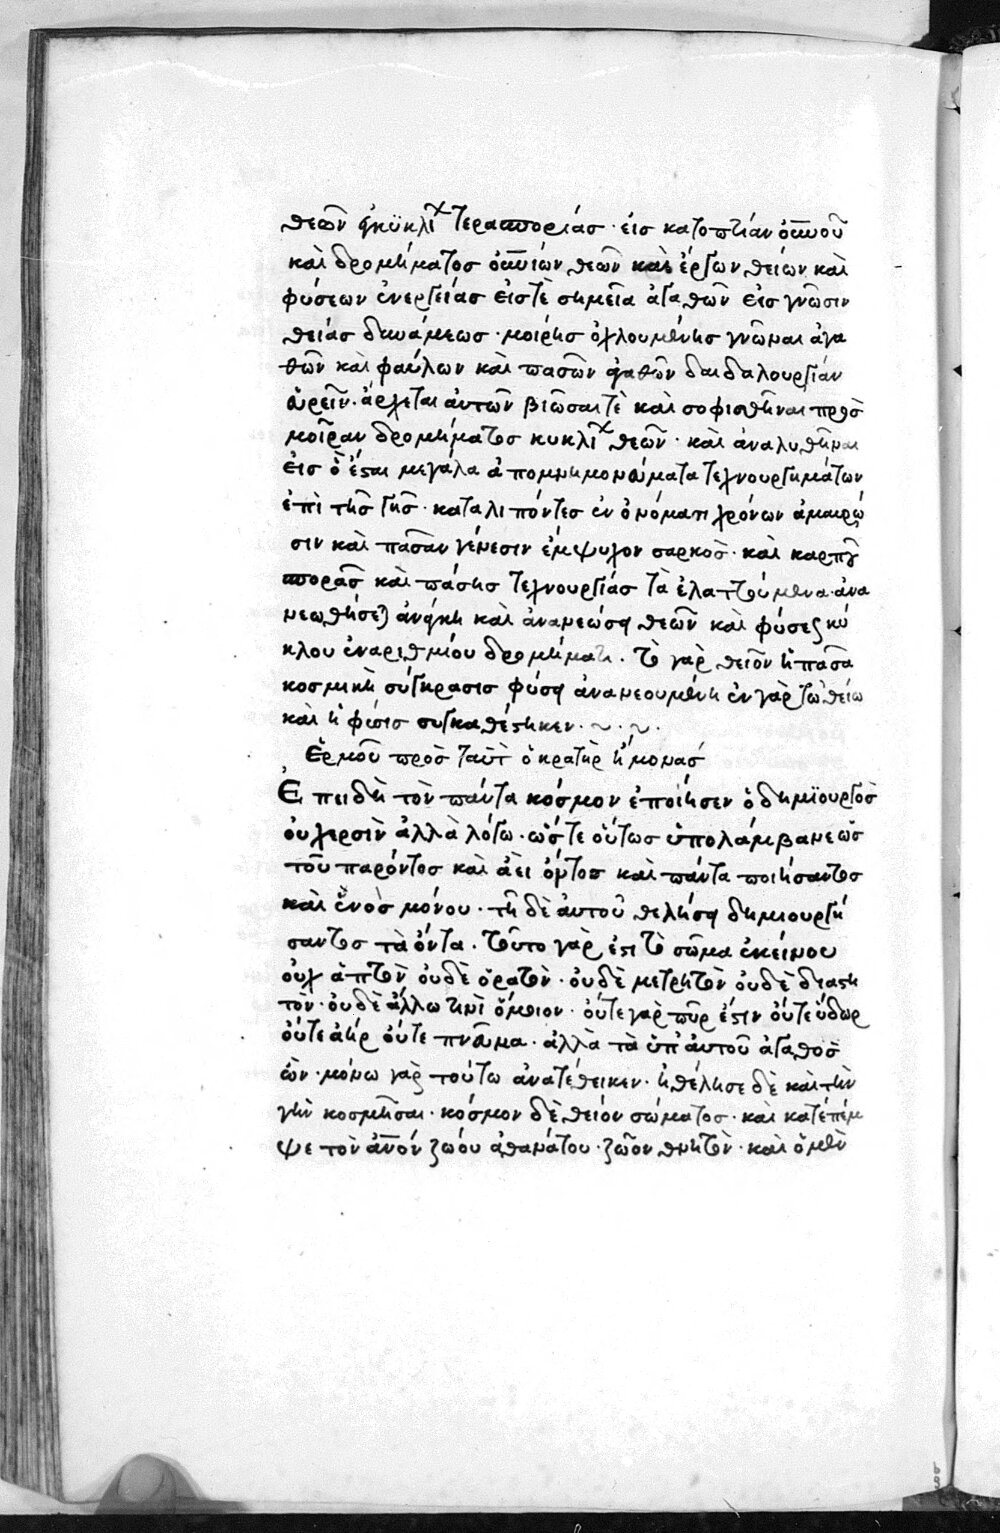 θεῶν ἐγκϋκλί τερασπορίας · εἰς κατοπτίαν οὐνοῦ
καὶ δρομήματος οὐνίων θεῶν καὶ ἔργων θείων καὶ
φύσεων ἐνεργείας εἴστὲ σημεῖα ἀγαθῶν εἰς γνῶσιν
θείας δυνάμεως · μοίρης ὀχλουμένης γνῶναι ἀγα
θῶν καὶ φαύλων καὶ πασῶν ἀγαθῶν δαιδαλουργίαν
εὑρεῖν · ἄρχεται αὐτῶν βιῶσαί τὲ καὶ σοφισθῆναι πρὸς
μοῖραν δρομήματος κυκλί θεῶν · καὶ ἀναλυθῆναι
εἰς ὃ ἔσται μεγάλα ἀπομνημονεύματα τεχνουργημάτων
ἐπὶ τῆς γῆς · καταλιπόντες ἐν ὀνόματι χρόνων ἀμαύρω
σιν καὶ πᾶσαν γένεσιν ἐμψύχον σαρκὸς · καὶ καρποῦ
σπορᾶς καὶ πάσης τεχνουργίας τὰ ἐλαττούμενα · ἀνα
νεωθήσεται ἀνάγκη καὶ ἀνανεώσει θεῶν καὶ φύσεως κύ
κλου ἐναριθμίου δρομήματι . τὸ γὰρ θεῖον ἡ πᾶσα
κοσμικὴ σύγκρασις φύσει ἀνανεουμένη ἐν γὰρ τῶ θείω
καὶ ἡ φύσις συγκαθέστηκεν · ~ · ~ ·
Ἑρμοῦ πρὸς τὰτ ὁ κρατὴρ ἡ μονάς
Ἐπειδὴ τὸν πάντα κόσμον ἐποίησεν ὁ δημϊουργὸς
οὐ χερσὶν ἀλλὰ λόγω · ὥστε οὕτως ὑπολάμβανε ὡς
τοῦ παρόντος καὶ ἀεὶ ὄντος καὶ πάντα ποιήσαντος
καὶ ἑνὸς μόνου · τῆ δὲ αὐτοῦ θελήσει δημιουργή
σαντος τὰ ὄντα . τοῦτο γάρ ἐστι τὸ σῶμα ἐκείνου
οὐχ ἁπτὸν οὐδὲ ὁρατὸν · οὐδὲ μετρητὸν οὐδὲ διαστη
τὸν · οὐδὲ ἄλλω τινὶ ὅμοιον · οὔτε γὰρ πῦρ ἔστιν οὔτε ὕδωρ
οὔτε ἀὴρ οὔτε πνεῦμα · ἀλλὰ τὰ ὑπ' αὐτοῦ ἀγαθὸς
ὢν · μόνω γὰρ τούτω ἀνατέθεικεν · ἠθέλησε δὲ καὶ τὴν
γῆν κοσμῆσαι · κόσμον δὲ θείον σώματος · καὶ κατέπεμ
ψε τὸν ἄνον ζώου ἀθανάτου · ζῶον θνητὸν · καὶ ὁ μὲν